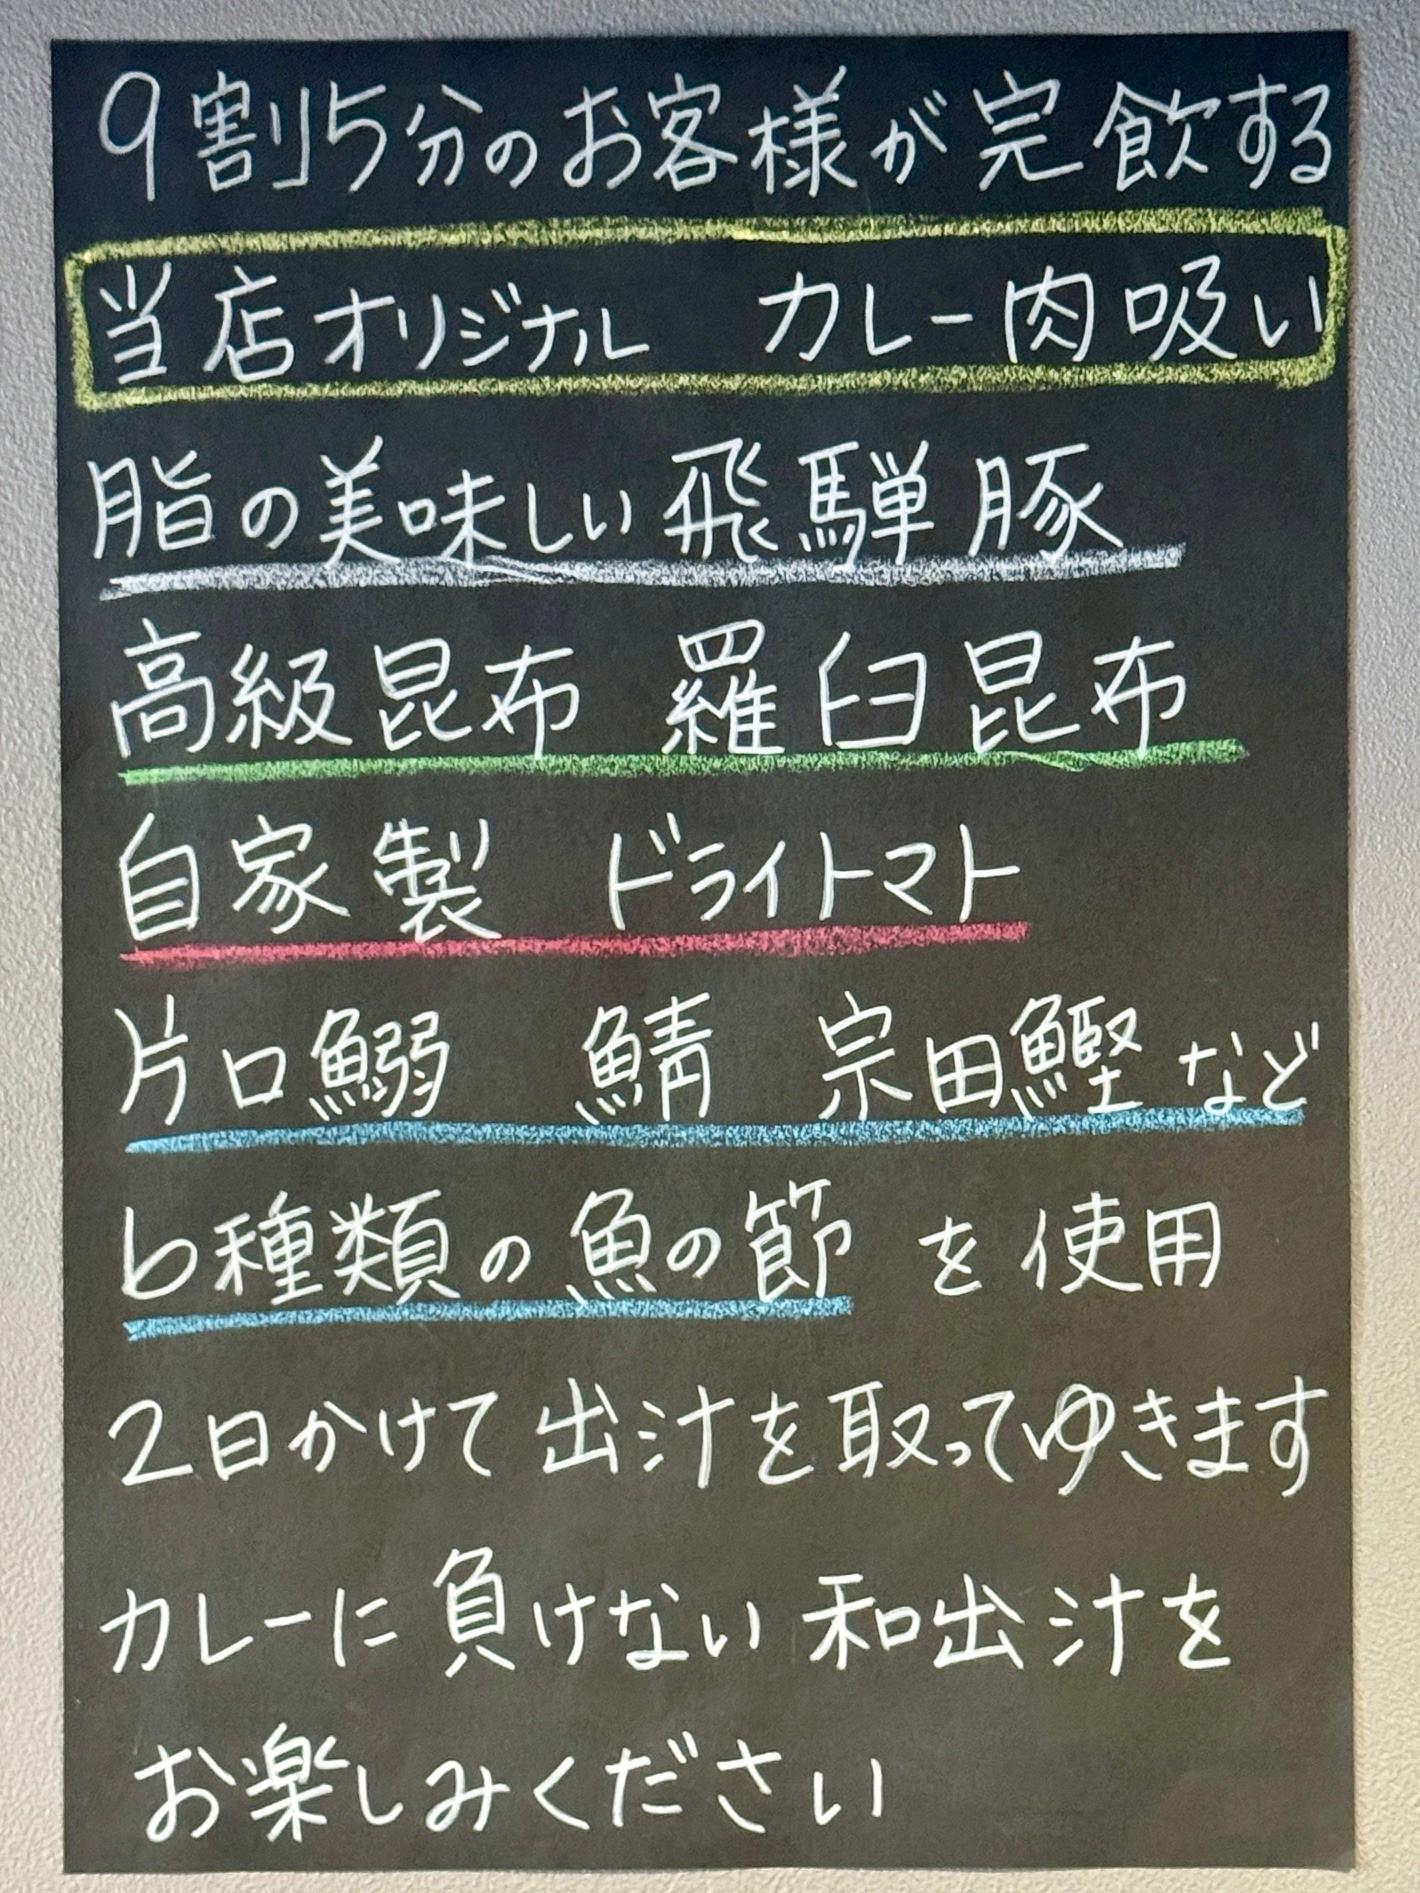 9割5分のお客様が完飲する
当店オリジナル　カレー肉吸い
脂の美味しい飛騨豚
高級昆布　羅臼昆布
自家製　ドライトマト
片口鰯　鯖　宗田鰹など
6種類の魚の節　を使用
2日かけて出汁を取ってゆきます
カレーに負けない和出汁を
お楽しみください